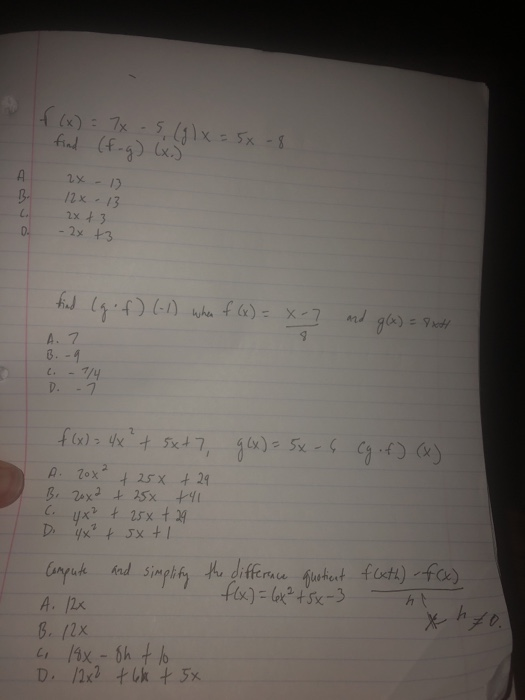 f(x) = 7x - 5, (g)x = 5x - 8
find (f-g) (x.)
A 2x - 13
B. 12x - 13
C. 2x + 3
D. - 2x + 3
find (g · f) (-1) when f(x) = x-7/8 and g(x) =
A. 7
B. -9
C. - 7/4
D. - 7
f(x) = 4x² + 5x + 7, g(x) = 5x - 6 (g · f) (x)
A. 20x² + 25x + 29
B. 20x² + 25x + 41
C. 4x² + 25x + 29
D. 4x² + 5x + 1
Compute and simplify the difference quotient f(x+h) - f(x)/h
f(x.) = 6x² + 5x - 3 h ≠ 0.
A. 12x
B. 12x
C. 18x - 8h + 10
D. 12x² + + 5x